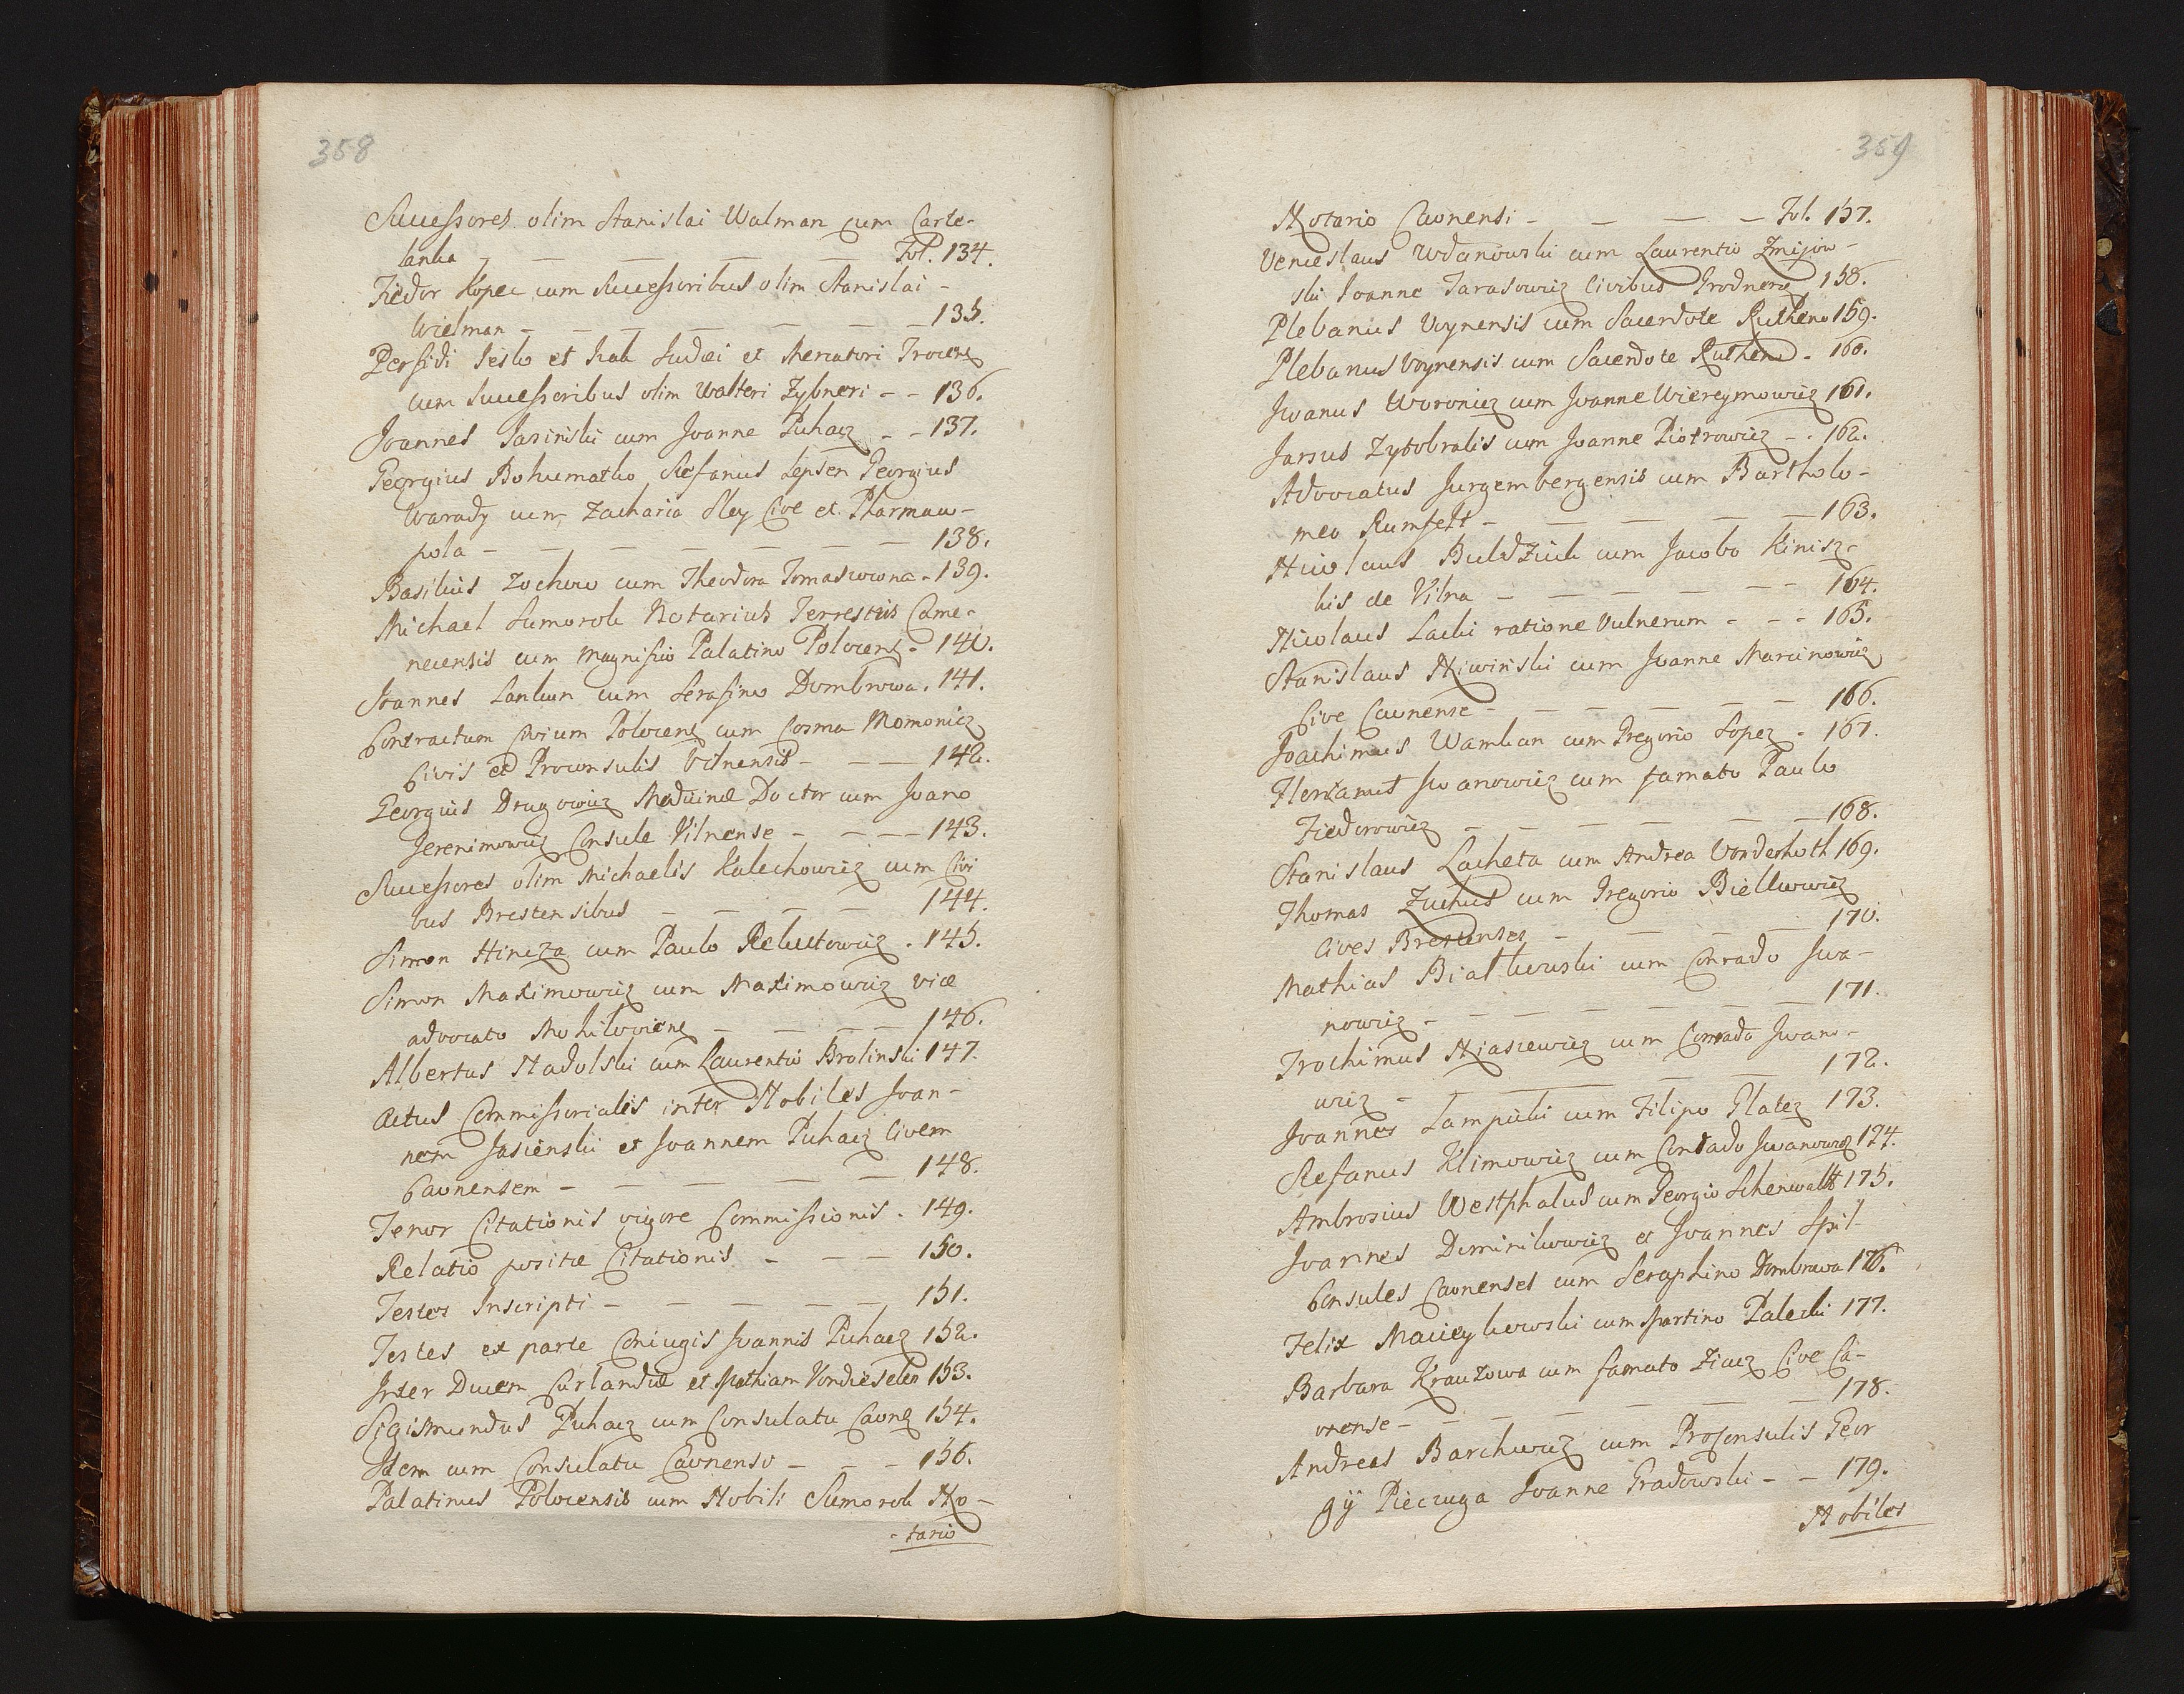 358
Successores olim Stanislai Walman cum Carte-
lanka - - - - - - Fol. 134.
Fiedor Kopec cum Successoribus olim Stanislai -
Wielman - - - - - - - 135.
Perfidi Iesko et Izak Judæi et Mercatori Trocens
cum Successoribus olim Walteri Zybneri - - 136.
Joannes Jasinski cum Joanne Puhacz - - 137.
Georgius Bohumatko Stefanus Lepsen Georgius
Warady cum Zacharia Kley Cive et Pharmaco-
pola - - - - - - - 138.
Basilius Zochow cum Theodora Tomaszowna - 139.
Michael Sumorok Notarius Terrestris Came-
necensis cum Magnifico Palatino Polocens - 140.
Joannes Lankun cum Serafino Dombrowa. 141.
Contractum Civium Polocens cum Cosma Momonicz
Civis et Proconsulis Vilnensis - - - 142.
Georgius Drugowicz Medicinæ Doctor cum Joano
Jerenimowicz Consule Vilnense - - - 143.
Successores olim Michaelis Kalechowicz cum Civi
bus Brestensibus - - - - 144.
Simon Hincza cum Paulo Rekutowicz . 145.
Simon Maximowicz cum Maximowicz vice
advocato Mohiloviens - - - - 146.
Albertus Nadolski cum Laurentio Brolinski 147.
Actus Commissorialis inter Nobiles Joan-
nem Jasienski et Joannem Puhacz Civem
Caunensem - - - - - 148.
Tenor Citationis vigore Commissionis . 149.
Relatio positæ Citationis - - - 150.
Testes Inscripti - - - - - 151.
Testes ex parte Coniugis Joannis Puhacz 152.
Inter Ducem Curlandiæ et Mathiam Vondieselen 153.
Sigismundus Puhacz cum Consulatu Caunens 154.
Idem cum Consulatu Caunenso - - - 156.
Palatinus Polocensis cum Nobili Sumorok No-
- tario
359
Notario Caunensi - - - - Fol. 157.
Venceslaus Wdanowski cum Laurentio Zmijow-
ski Joanne Tarasowicz Civibus Grodnens 158.
Plebanus Voynensis cum Sacerdote Rutheno 159.
Plebanus Voynensis cum Sacerdote Rutheno - 160.
Iwanus Woronicz cum Joanne Wiereymowicz 161.
Jarsus Zytobralis cum Joanne Piotrowicz - . 162.
Advocatus Jurgembergensis cum Bartholo-
meo Rumfelt - - - - - 163.
Nicolaus Buldziuk cum Jacobo Kinisz-
kis de Vilna - - - - - - 164.
Nicolaus Lacki ratione Vulnerum - - - 165.
Stanislaus Niwinski cum Joanne Marcinowicz
Cive Caunense - - - - - - 166.
Joachimus Wamban cum Gregorio Lopez - 167.
Hermanus Iwanowicz cum famato Paulo
Fiedorowicz - - - - - - 168.
Stanislaus Lacheta cum Andrea Vonderholt 169.
Thomas Zuchus cum Gregorio Bielkowicz
Cives Brestenses - - - - - 170.
Mathias Bialkowski cum Conrado Iwa-
nowicz - - - - - - - 171.
Trochimus Niasciewicz cum Conrado Iwano-
wicz - - - - - 172.
Joannes Lampicki cum Filipo Platez 173.
Stefanus Klimowicz cum Conrado Iwanowicz 174.
Ambrosius Westphalus cum Georgio Schenwaldt 175.
Joannes Dominikowicz et Joannes Spil
Consules Caunenses cum Seraphino Dombrowa 176.
Felix Macieykowski cum Martino Palecki 177.
Barbara Krauzowa cum famato Ziacz Cive Ca-
unense - - - - - - - 178.
Andreas Barchwicz cum Proconsulis Geor
gij Pieczuga Joanne Gradowski - - 179.
Nobiles